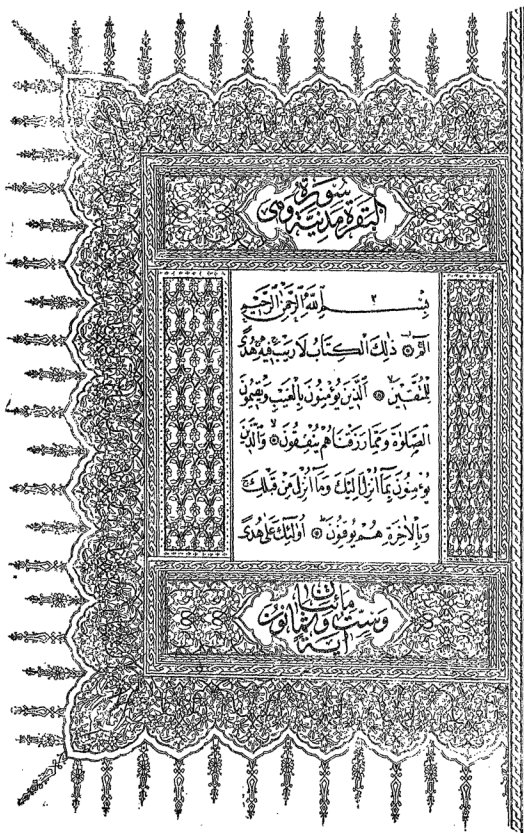 سورة
البقرة مدنية وهى
٢
بِسْمِ اللّٰهِ الرَّحْمٰنِ الرَّحٖيمِ
الٓمٓ ۞ ذٰلِكَ الْكِتَابُ لَا رَيْبَ فٖيهِ هُدًى
لِلْمُتَّقٖينَ ۞ اَلَّذٖينَ يُؤْمِنُونَ بِالْغَيْبِ وَيُقٖيمُونَ
الصَّلٰوةَ وَمِمَّا رَزَقْنَاهُمْ يُنْفِقُونَ ۞ وَالَّذٖينَ
يُؤْمِنُونَ بِمَٓا اُنْزِلَ اِلَيْكَ وَمَٓا اُنْزِلَ مِنْ قَبْلِكَ
وَبِالْاٰخِرَةِ هُمْ يُوقِنُونَ ۞ اُولٰٓئِكَ عَلٰى هُدًى
مائتان
وست وثمانون
آية